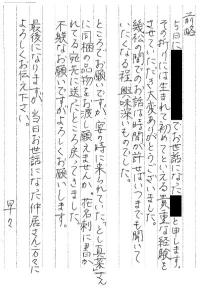 前略
5月
でお世話になった
と申します。
その折りには生まれて初めてといえる貴重な経験を
させていただき大変ありがとうございました。
幾時の間のお話は時間が許せばいつまでも聞いて
いたくなる程、興味深いものでした。
ところでお願いですが、宴の時に来られていた、とし真菜さん
に同梱の品物をお渡し願えませんか。花名刺に書か
れてる宛先に送ったところ戻ってきました。
不躾なお願いですがよろしくお願いします。
最後になりますが、当日お世話になった仲居さん方々に
よろしくお伝え下さい。
早々